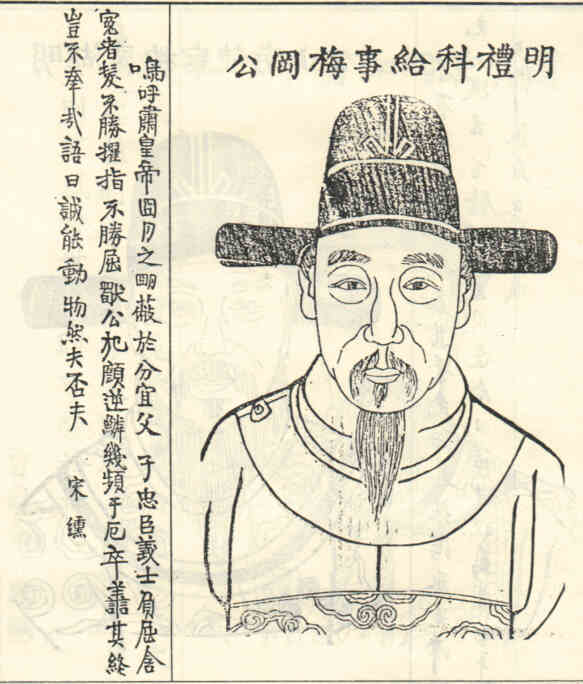 明禮科給事梅岡公
嗚呼肅皇帝日月之朙蔽於分宜父子忠臣義士負屈含
冤者髮不勝擢指不勝屈公犯顏逆鱗幾頻于厄卒譱其終
豈不語曰誠能動物然夫否夫 宋纁